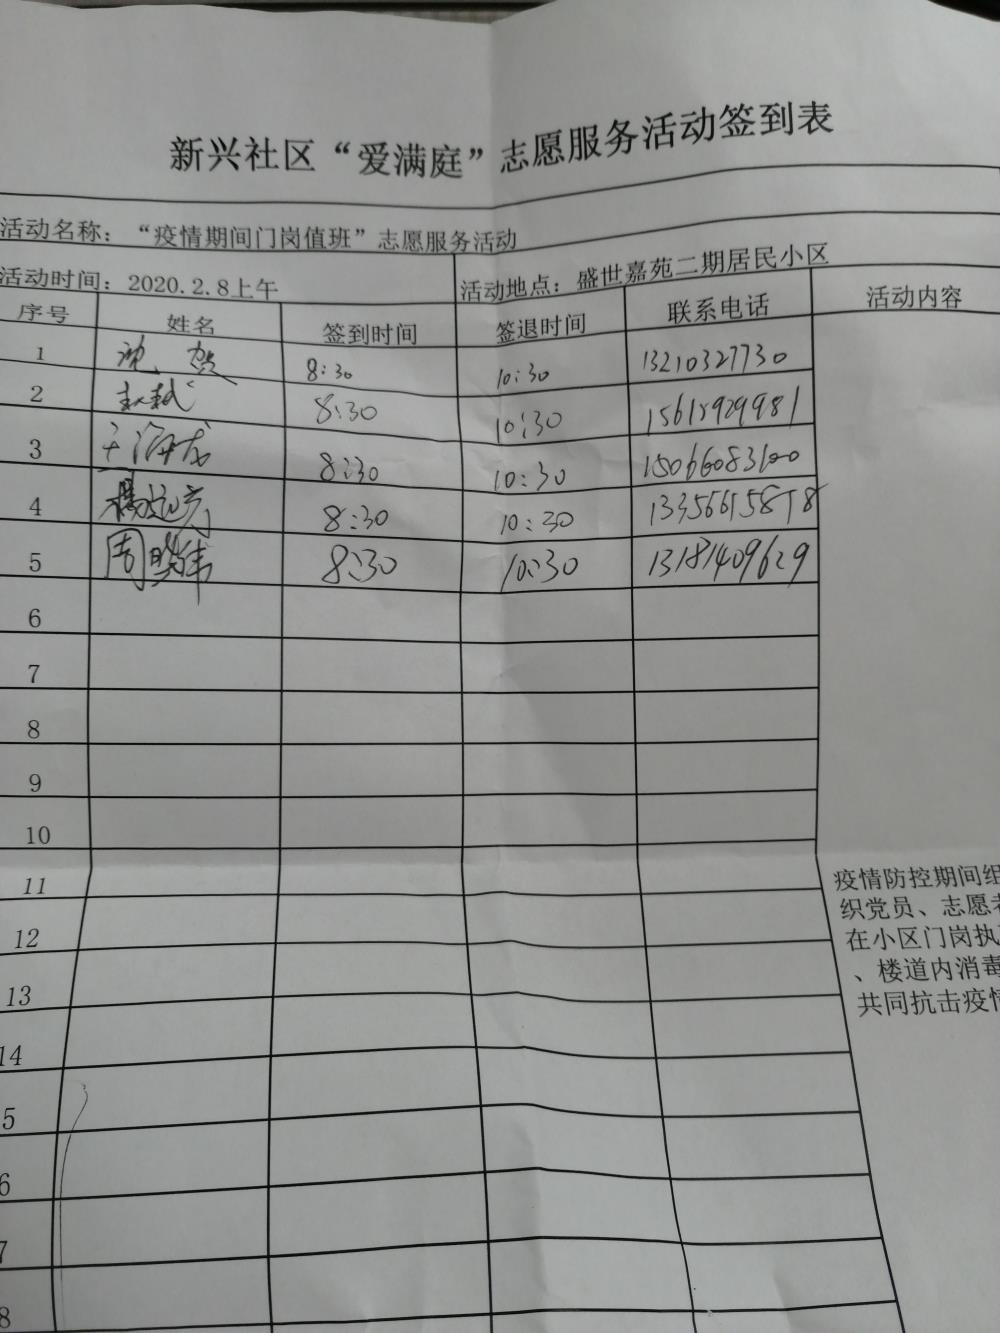 新兴社区“爱满庭”志愿服务活动签到表
活动名称：“疫情期间门岗值班”志愿服务活动
活动时间：2020.2.8上午 活动地点：盛世嘉苑二期居民小区
序号 姓名 签到时间 签退时间 联系电话 活动内容
1 沈贺 8:30 10:30 13210327730
2 8:30 10:30 15615929981
3 王海成 8:30 10:30 15066083100
4 8:30 10:30 13356615878
5 周晓伟 8:30 10:30 13181409629
6
7
8
9
10
11
12
13
14
5
6
7
8
疫情防控期间组
织党员、志愿者
在小区门岗执
、楼道内消毒
共同抗击疫情